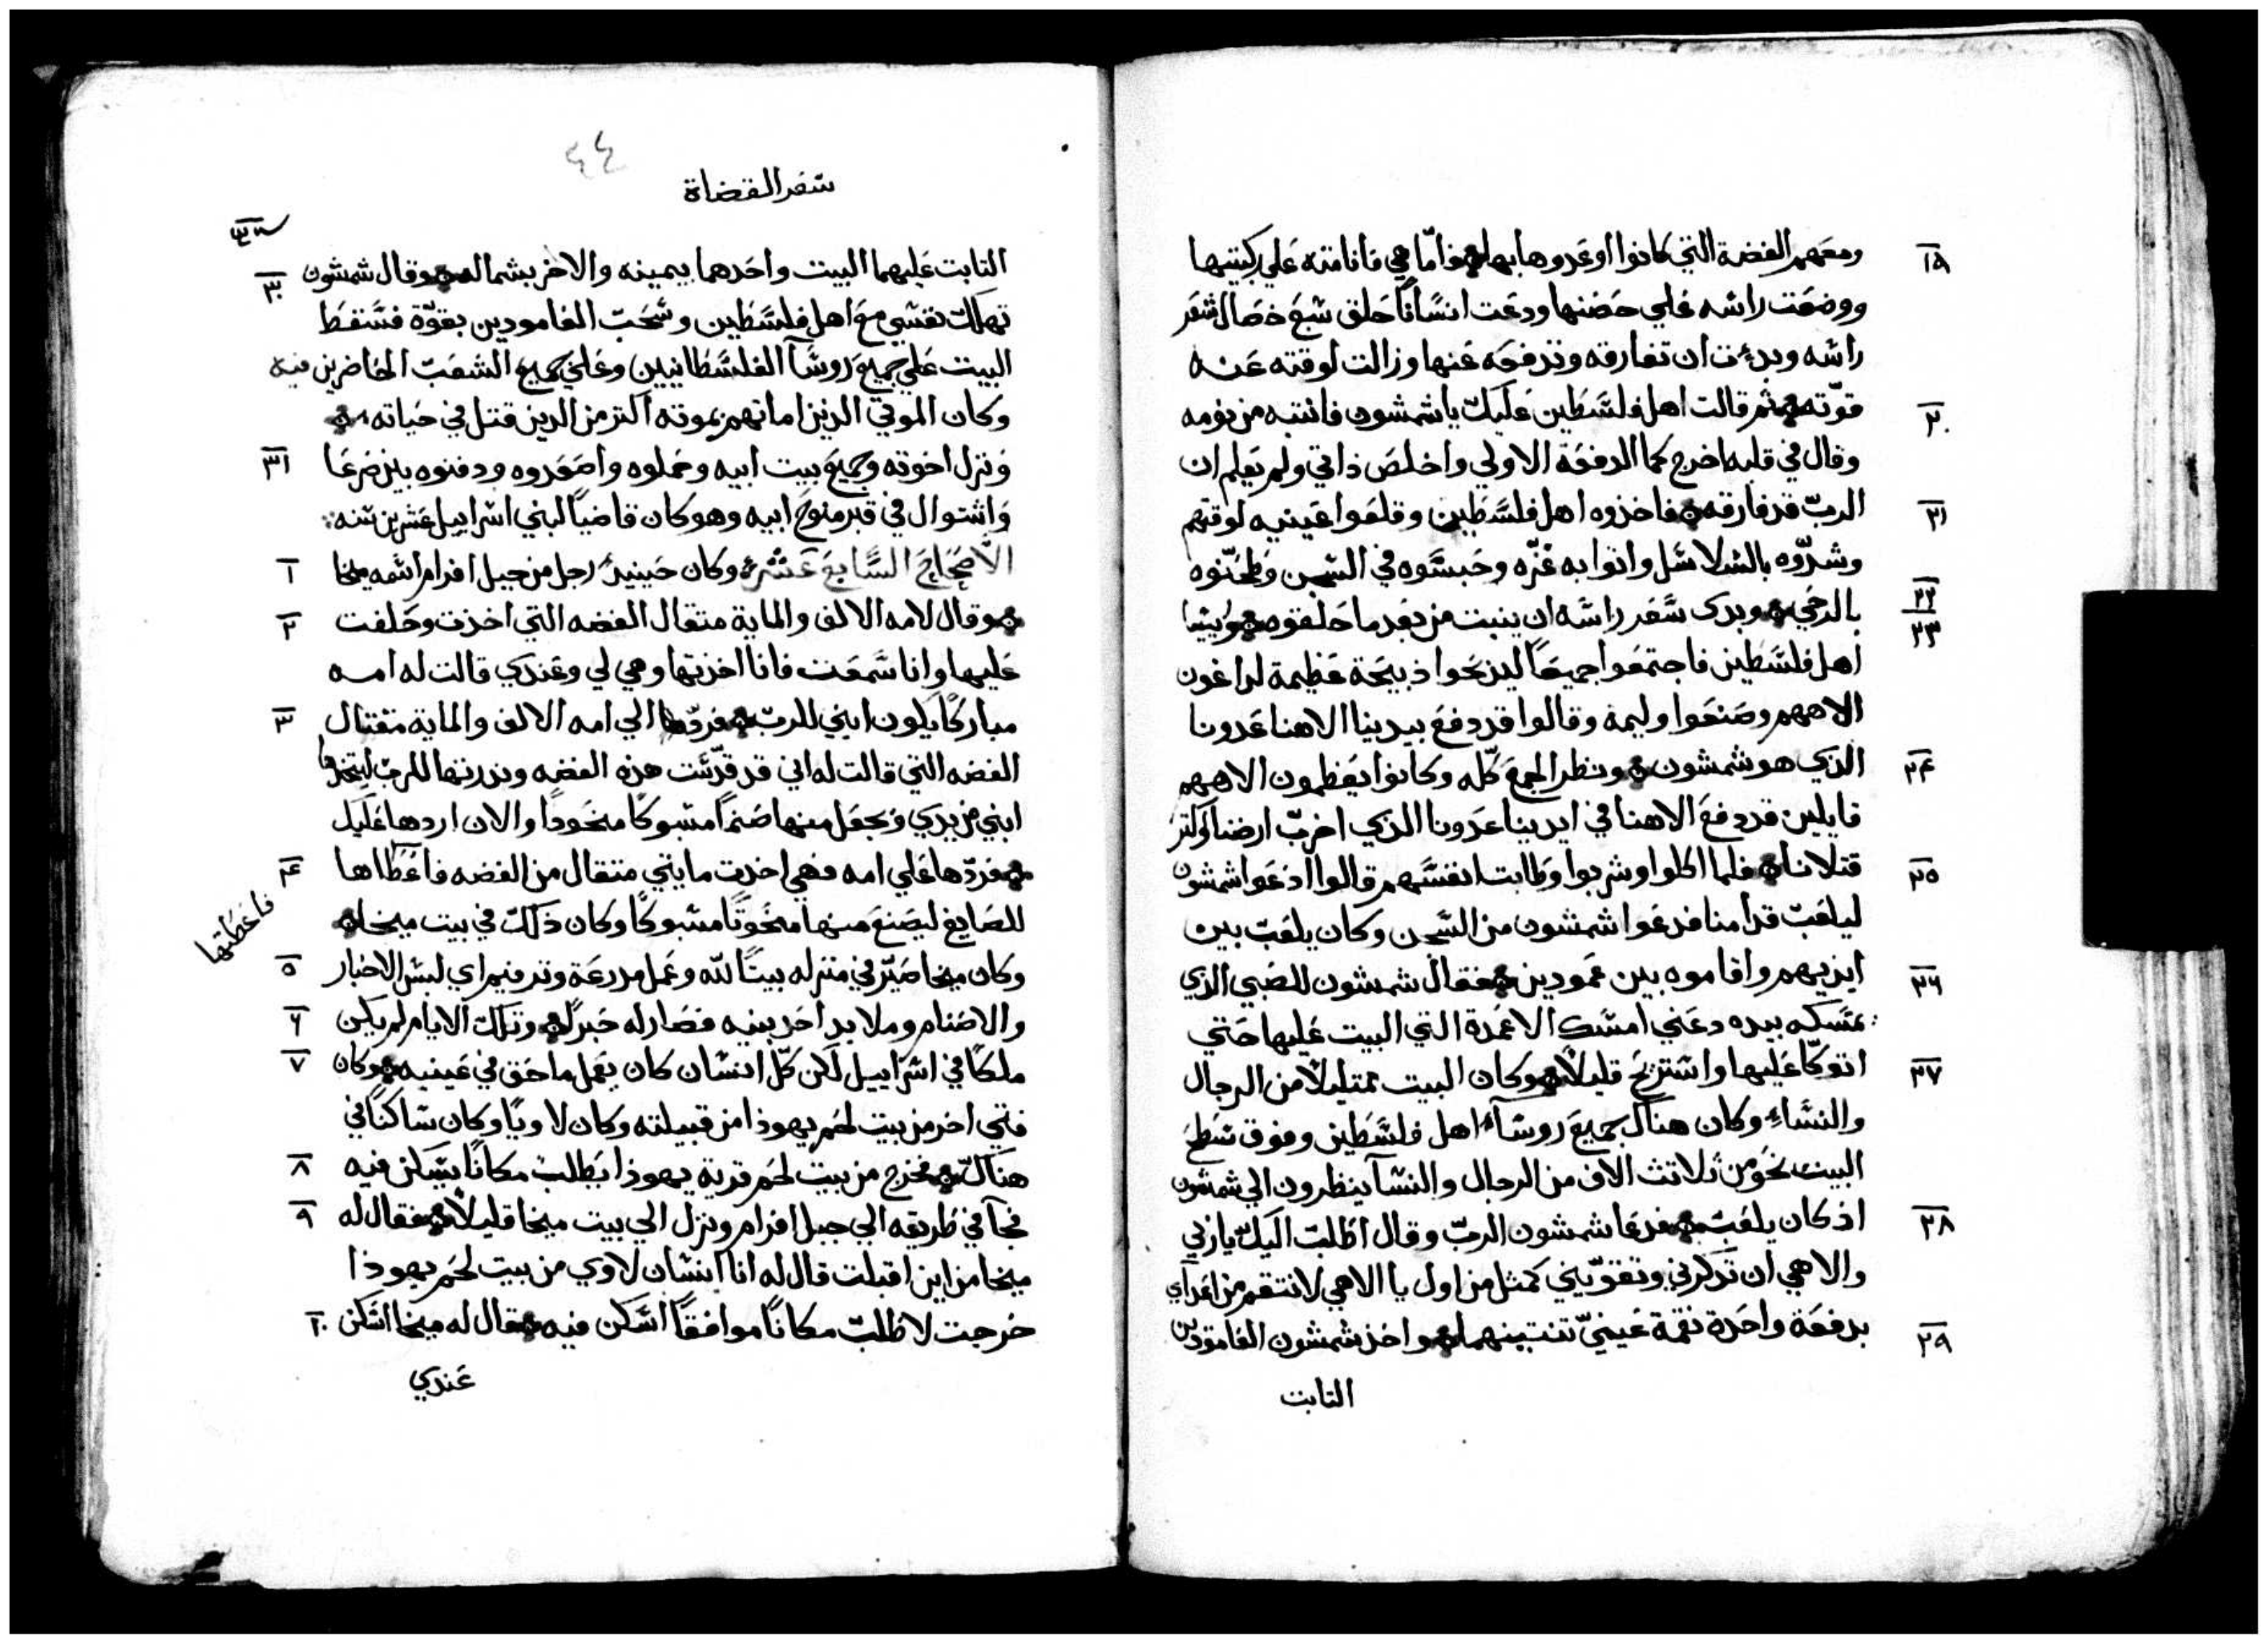 ومعهم الفضة التي كانوا اوعدوها بها فامّا هي فانامته علي ركبتيها ١٩
ووضعت راسه علي حضنها ودعت انسانًا حلق سبع خصال شعر
راسه وبدءت ان تفارقه وتدفعه عنها وزالت لوقته عنه
قوّته ثم قالت اهل فلسطين عليك يا شمشون فانتبه من نومه ٢٠
وقال في قلبه اخرج كما الدفعة الاولي واخلص ذاتي ولم يعلم ان
الربّ قد فارقه فاخذوه اهل فلسطين وقلعوا عينيه لوقتهم ٢١
وشدّوه بالسلاسل واتوا به غزّه وحبسوه في السجن وطحّنوه
بالرحي وبدي شعر راسه ان ينبت من بعد ما حلقوه وريسا ٢٢ ٢٣
اهل فلسطين فاجتمعوا جميعًا ليذبحوا ذبيحة عظيمة لداغون
الاههم وصنعوا وليمة وقالوا قد دفع بيدينا الاهنا عدونا
الذي هو شمشون ونظر الجمع كلّه وكانوا يعظمون الاههم ٢٤
قايلين قد دفع الاهنا في ايدينا عدونا الذي اخرب ارضنا واكتر
قتلانا فلما اكلوا وشربوا وطابت انفسهم قالوا ادعوا شمشون ٢٥
ليلعب قدامنا فدعوا شمشون من السجن وكان يلعب بين
ايديهم واقاموه بين عمودين فقال شمشون للصبي الذي ٢٦
يمسكه بيده دعني امسك الاعمدة التي البيت عليها حتي
اتوكّا عليها واستريح قليلًا وكان البيت ممتليًا من الرجال ٢٧
والنساء وكان هناك جميع روساء اهل فلسطين وفوق سطح
البيت نحو من ثلاتت الاف من الرجال والنسآ ينظرون الي شمشون
اذ كان يلعب فدعا شمشون الربّ وقال اطلب اليك يا ربي ٢٨
والاهي ان تذكرني وتقوّيني كمثل من اول يا الاهي لانتقم من اعدآي
بدفعة واحدة نقمة عينيّ تنتينهما واخذ شمشون العامودين ٢٩
التابت
٤٤
سفر القضاة
التابت عليهما البيت واحدهما بيمينه والاخر بشماله وقال شمشون ٣٠
تهلك نفسي مع اهل فلسطين وسحب العامودين بقوّة فسقط
البيت علي جميع روسآ الفلسطانيين وعلي جميع الشعب الحاضرين فيه
وكان الموتي الذين اماتهم بموته اكتر من الذين قتل في حياته
ونزل اخوته وجميع بيت ابيه وحملوه واصعدوه ودفنوه بين صرعا ٣١
واشتوال في قبر منوح ابيه وهو كان قاضيًا لبني اسراييل عشرين سنه
الاصحاح السابع عشر وكان حينيد رجل من جبل افرام اسمه ميخا ١
وقال لامه الالف والماية متقال الفضه التي اخذت وحلفت ٢
عليها وانا سمعت فانا اخذتها وهي لي وعندي قالت له امه
مباركًا يكون ابني للربّ فردّها الي امه الالف والماية متقتال ٣
الفضه التي قالت له اني قد قدّست هذه الفضه ونذرتها للربّ ليتخذها
ابني من يدي ويجعل منها صنمًا مسبوكًا منحوداً والان اردها عليك
فردّها علي امه فهي اخدت مايتي متقال من الفضه فاعطاها ٤
فاعطتها
للصايغ ليصنع منها منحوتًا مسبوكًا وكان ذلك في بيت ميخا
وكان ميخا صيّر في منزله بيتًا لله وعمل مدرعة وترفيم اي لبس الاحبار ٥
والاصنام وملا يد احد بنيه فصار له حبرًا وتلك الايام لم يكن ٦
ملكًا في اسراييل لكن كلّ انسان كان يعمل ما حق في عينيه وكان ٧
فتي اخر من بيت لحم يهوذا من قبيلته وكان لاويًا وكان ساكنًا في
هناك فخرج من بيت لحم قرية يهوذا يطلب مكانًا يسكن فيه ٨
فجآ في طريقه الي جبل افرام ونزل الي بيت ميخا قليلًا فقال له ٩
ميخا من اين اقبلت قال له انا انسان لاوي من بيت لحم يهوذا
خرجت لاطلب مكانًا موافقًا اسكن فيه فقال له ميخا اسكن ١٠
عندي